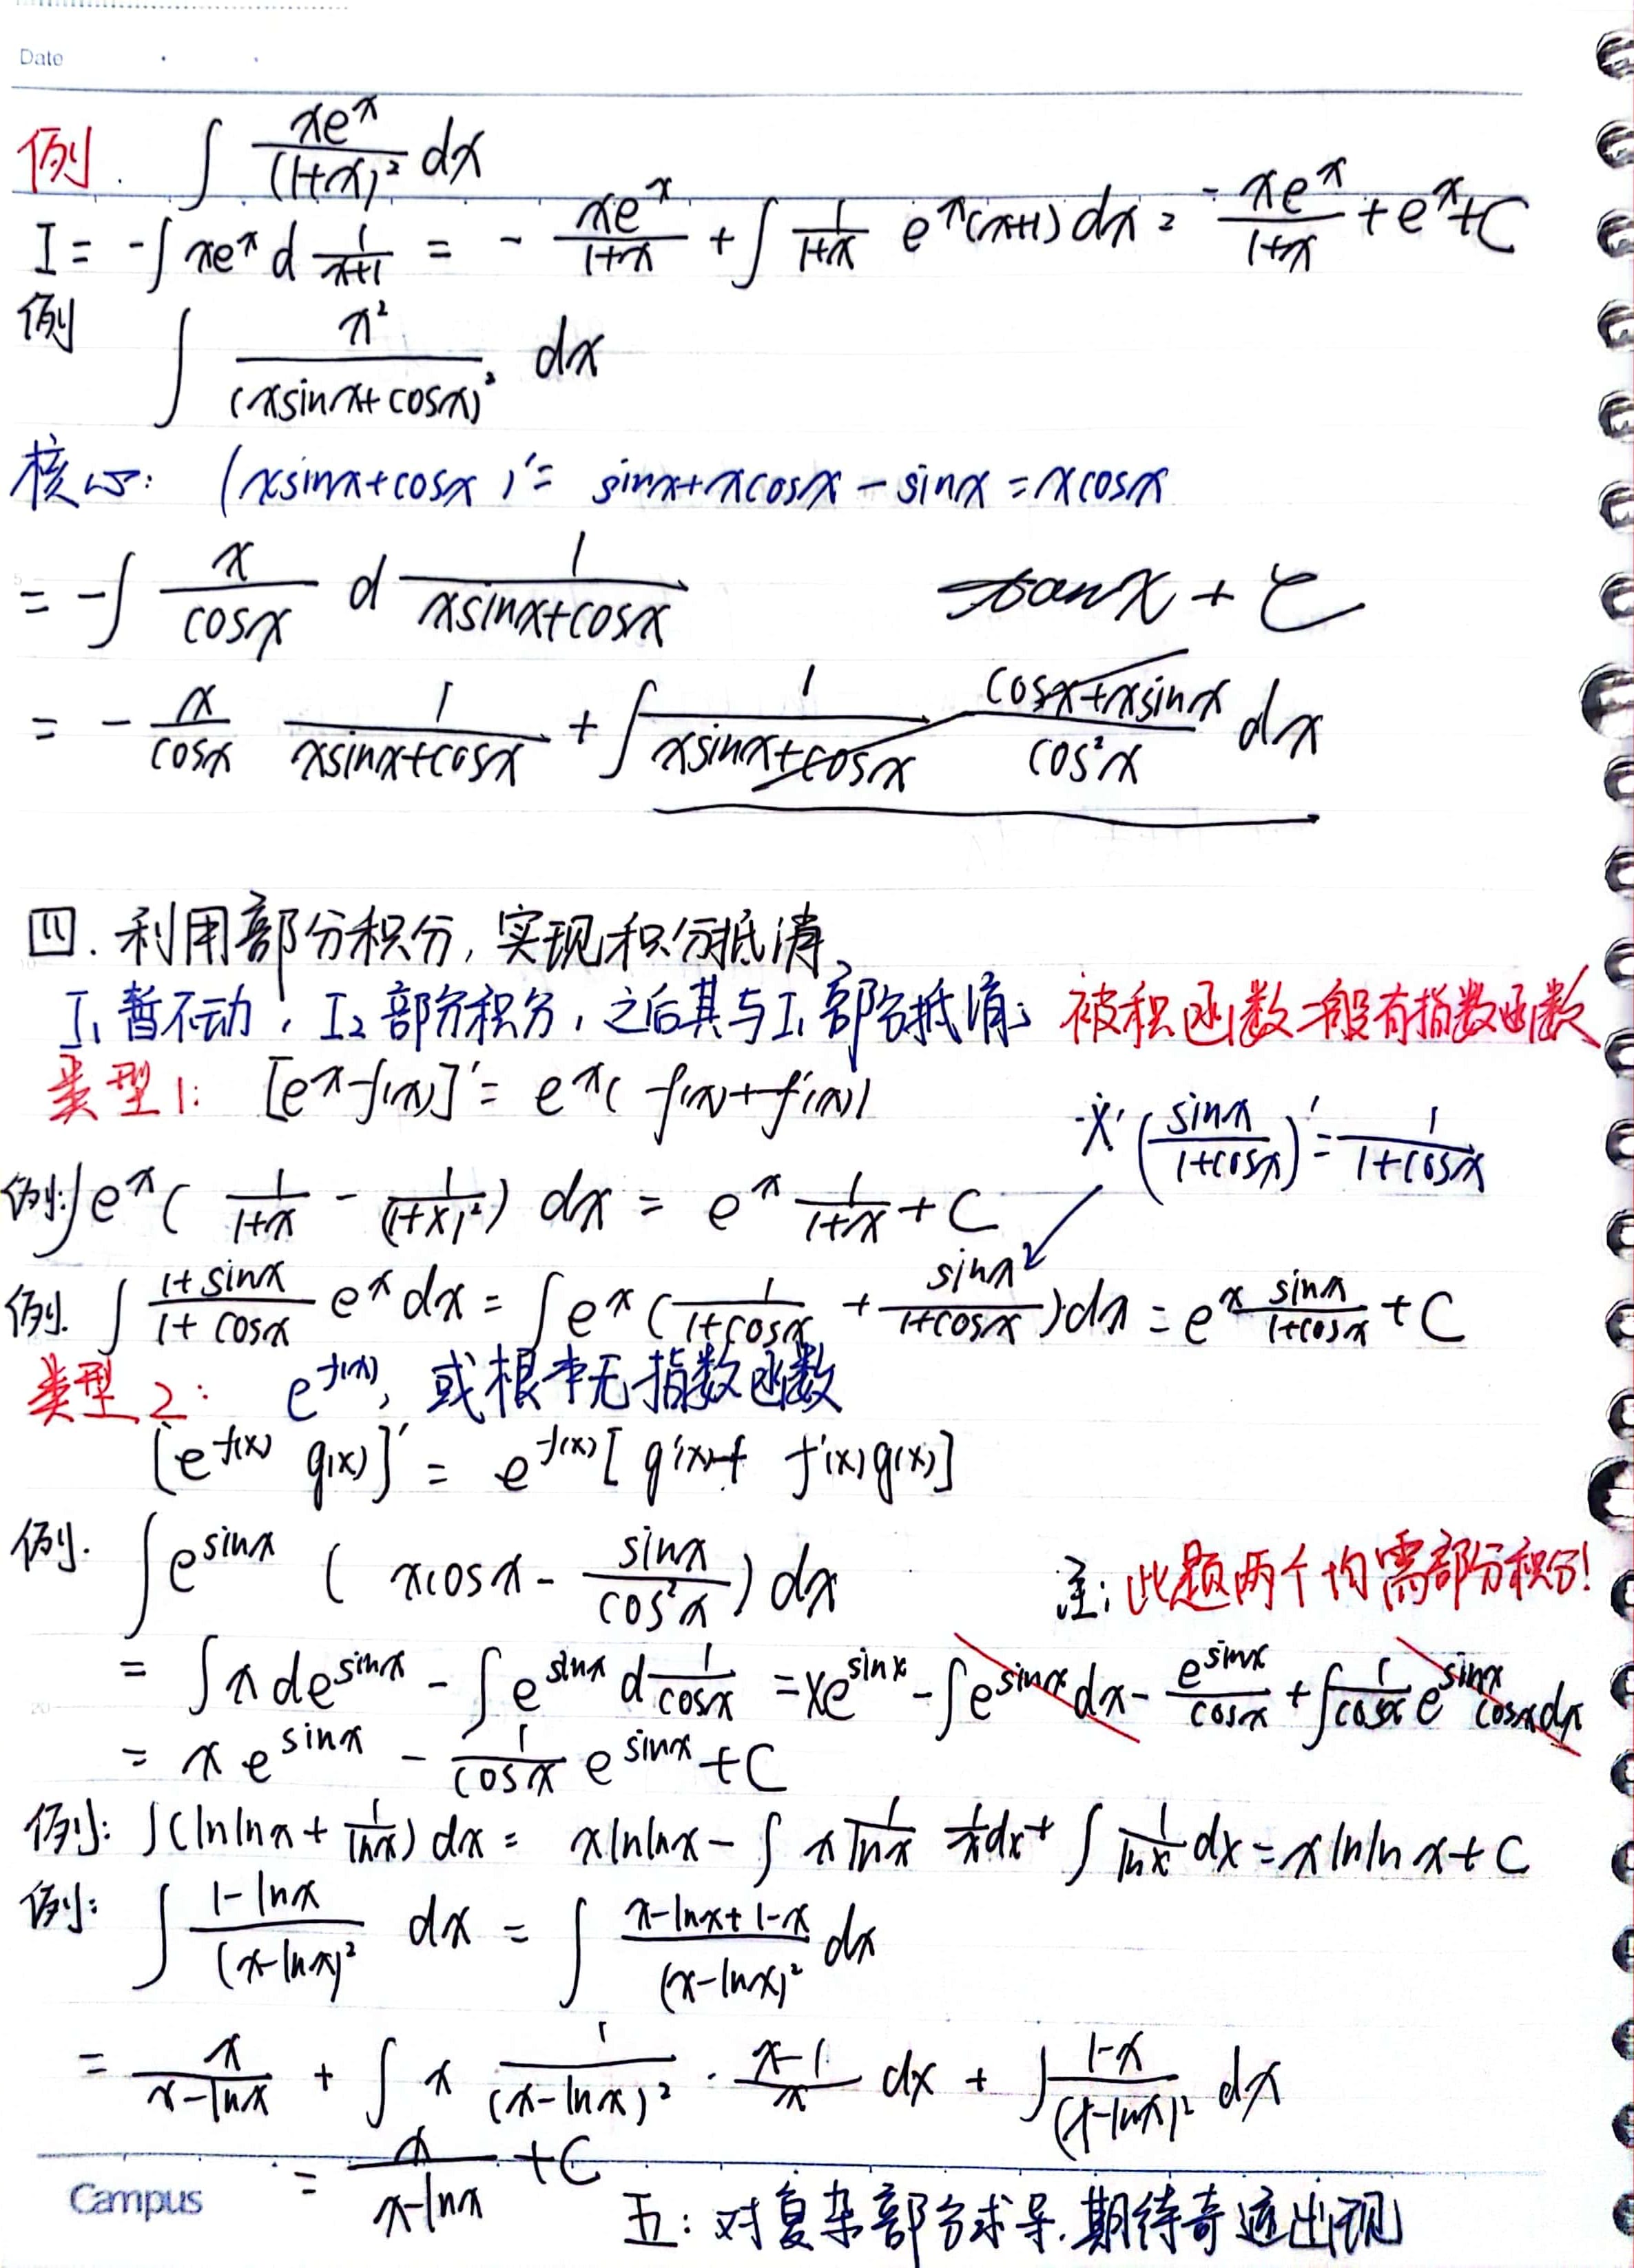 Date
例. ∫ xe^x/(1+x)² dx
I = -∫ xe^x d 1/(x+1) = - xe^x/(1+x) + ∫ 1/(1+x) e^x(x+1) dx = - xe^x/(1+x) + e^x + C
例 ∫ x²/(xsinx+cosx)² dx
核心: (xsinx+cosx)' = sinx+xcosx-sinx = xcosx
= -∫ x/cosx d 1/(xsinx+cosx)
tanx + C
= - x/cosx 1/(xsinx+cosx) + ∫ 1/(xsinx+cosx) (cosx+xsinx)/cos²x dx
四. 利用部分积分, 实现积分抵消.
I₁暂不动, I₂部分积分, 之后其与I₁部分抵消; 被积函数一般有指数函数
类型1: [e^x f(x)]' = e^x( f(x)+f'(x))
※ (sinx/(1+cosx))' = 1/(1+cosx)
例: ∫e^x( 1/(1+x) - 1/(1+x)²) dx = e^x 1/(1+x) + C
例. ∫ (1+sinx)/(1+cosx) e^x dx = ∫ e^x (1/(1+cosx) + sinx/(1+cosx)) dx = e^x sinx/(1+cosx) + C
类型2: e^f(x), 或根本无指数函数
[e^f(x) g(x)]' = e^f(x) [ g'(x)+ f'(x)g(x)]
例. ∫e^sinx ( xcosx - sinx/cos²x) dx
注: 此题两个均需部分积分!
= ∫x de^sinx - ∫e^sinx d 1/cosx = xe^sinx - ∫e^sinx dx - e^sinx/cosx + ∫ 1/cosx e^sinx cosx dx
= x e^sinx - 1/cosx e^sinx + C
例: ∫(lnlnx + 1/lnx) dx = xlnlnx - ∫ x 1/lnx 1/x dx + ∫ 1/lnx dx = xlnlnx + C
例: ∫ (1-lnx)/(x-lnx)² dx = ∫ (x-lnx+1-x)/(x-lnx)² dx
= x/(x-lnx) + ∫ x 1/(x-lnx)² · (x-1)/x dx + ∫ (1-x)/(x-lnx)² dx
= x/(x-lnx) + C
Campus
五: 对复杂部分求导, 期待奇迹出现